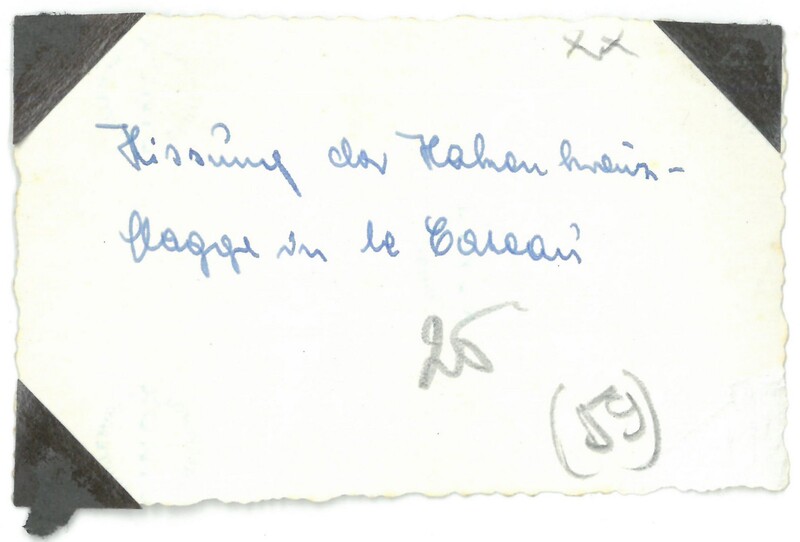 xx
Hissung der Hakenkreuz-
flagge in le Cateau
25
(59)